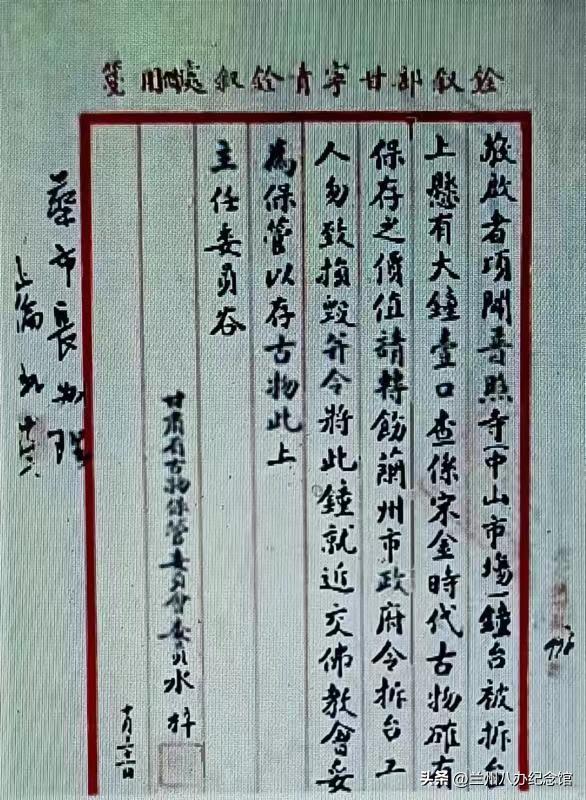 銓叙部甘寧青銓叙處用箋
敬啟者頃聞普照寺(中山市場)鐘台被拆台
上懸有大鐘壹口查係宋金時代古物確有
保存之價值請轉飭蘭州市政府令拆台工
人勿致損毀并令將此鐘就近交佛教會妥
為保管以存古物此上
主任委員谷
甘肅省古物保管委員會委員水梓
十月二十一日
蔡市長辦理
头条@兰州八办纪念馆